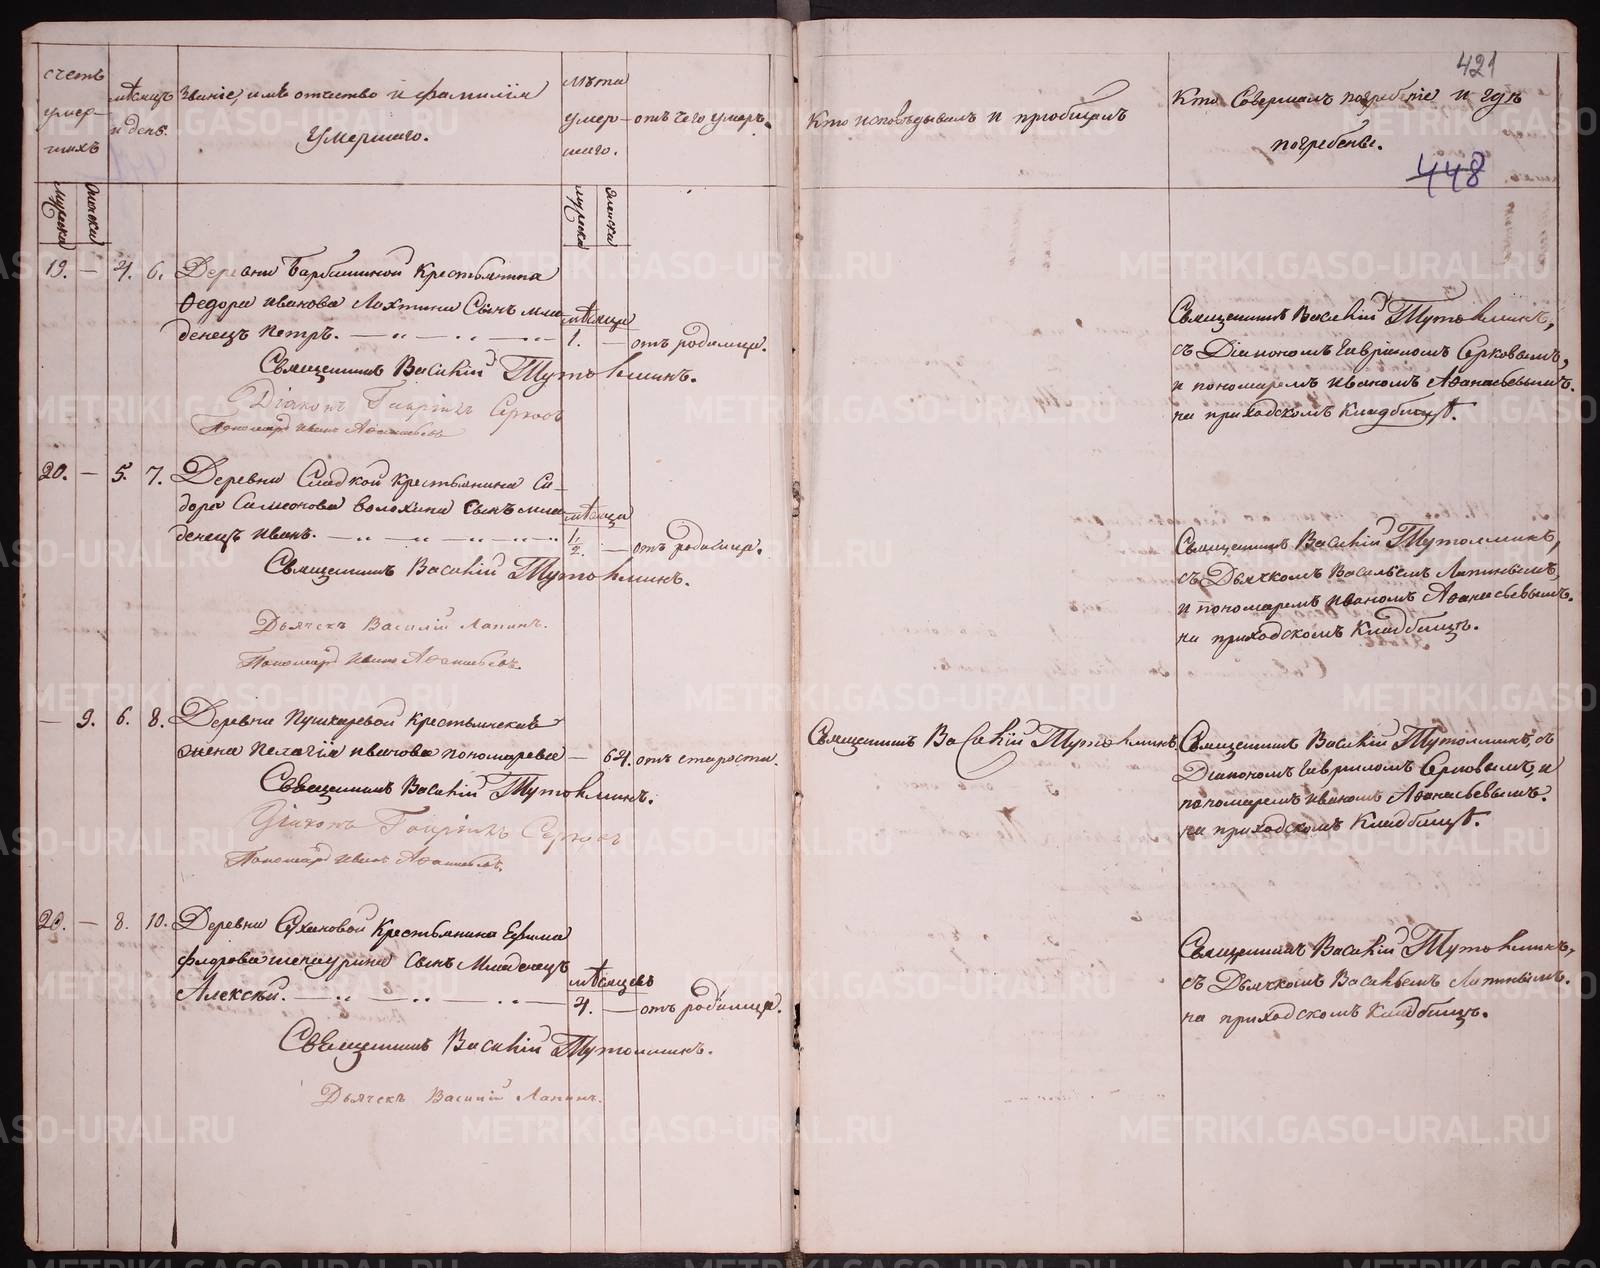 421
448
счетъ умер-шихъ
мѣсяцъ и день.
Званіе, имя отчество и фамилія умершаго.
лѣта умер-шаго.
отъ чего умеръ.
Кто исповѣдывалъ и пріобщалъ
Кто Совершалъ погребеніе и гдѣ погребены.
мужска
женска
мужска
женска
19. — 4. 6. Деревни Барбашиной Крестьянина
Ѳедора Иванова Лахтина Сынъ мла-
мѣсяца
денецъ Петръ. — „ — „ — „ 1. — отъ родимца.
Священникъ Василій Тутолминъ.
Діаконъ Гавріилъ Серковъ
Пономарь Иванъ Аѳанасьевъ
Священникъ Василій Тутолминъ,
съ Діакономъ Гавріиломъ Серковымъ,
и пономаремъ Иваномъ Аѳанасьевымъ.
на приходскомъ Кладбищѣ.
20. — 5. 7. Деревни Сладкой Крестьянина Си-
дора Симеонова Волохина Сынъ мла-
мѣсяца
денецъ Иванъ. — „ — „ — „ 1/2. — отъ родимца.
Священникъ Василій Тутолминъ.
Дьячекъ Василій Лапинъ.
Пономарь Иванъ Аѳанасьевъ.
Священникъ Василій Тутолминъ,
съ Дьячкомъ Васильемъ Лапинымъ,
и пономаремъ Иваномъ Аѳанасьевымъ.
на приходскомъ Кладбищѣ.
— 9. 6. 8. Деревни Пушкаревой Крестьянская
жена Пелагія Иванова Пономарева — 64. отъ старости.
Священникъ Василій Тутолминъ.
Діаконъ Гавріилъ Серковъ
Пономарь Иванъ Аѳанасьевъ.
Священникъ Василій Тутолминъ
Священникъ Василій Тутолминъ, съ
Діакономъ Гавріиломъ Серковымъ, и
пономаремъ Иваномъ Аѳанасьевымъ.
на приходскомъ Кладбищѣ.
20. — 8. 10. Деревни Сухановой Крестьянина Ефима
Сынъ Младенецъ
мѣсяцевъ
Алексѣй. — „ — „ — „ — 4. — отъ родимца.
Священникъ Василій Тутолминъ.
Дьячекъ Василій Лапинъ.
Священникъ Василій Тутолминъ,
съ Дьячкомъ Васильемъ Лапинымъ.
на приходскомъ Кладбищѣ.